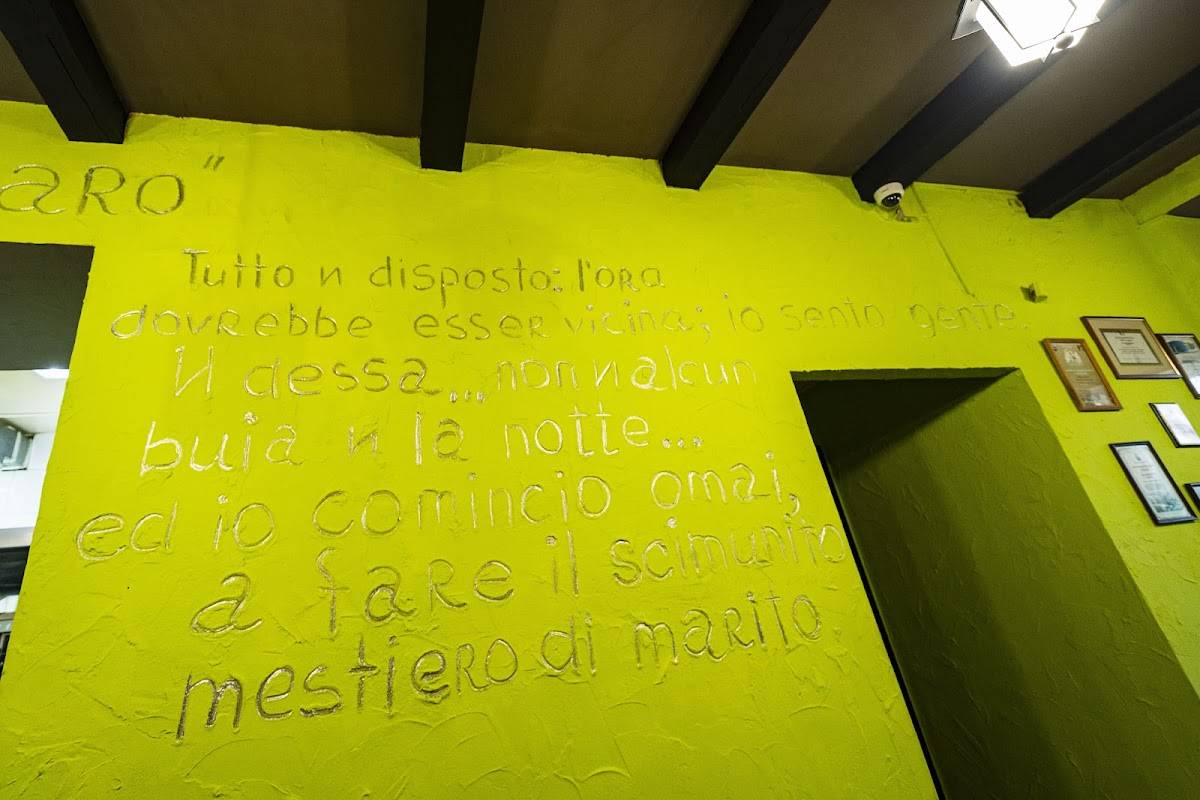 ARO"
Tutto и disposto: l'ora
dovrebbe esser vicina; io sento gente.
И dessa... non и alcun
buia и la notte...
ed io comincio omai,
a fare il scimunito
mestiero di marito.